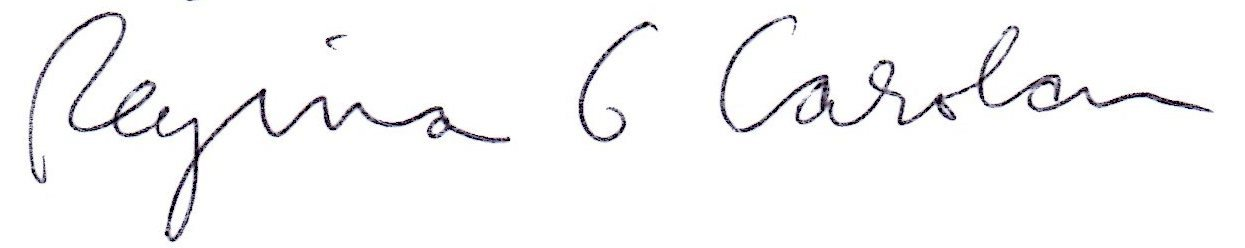 Regina G Carolan